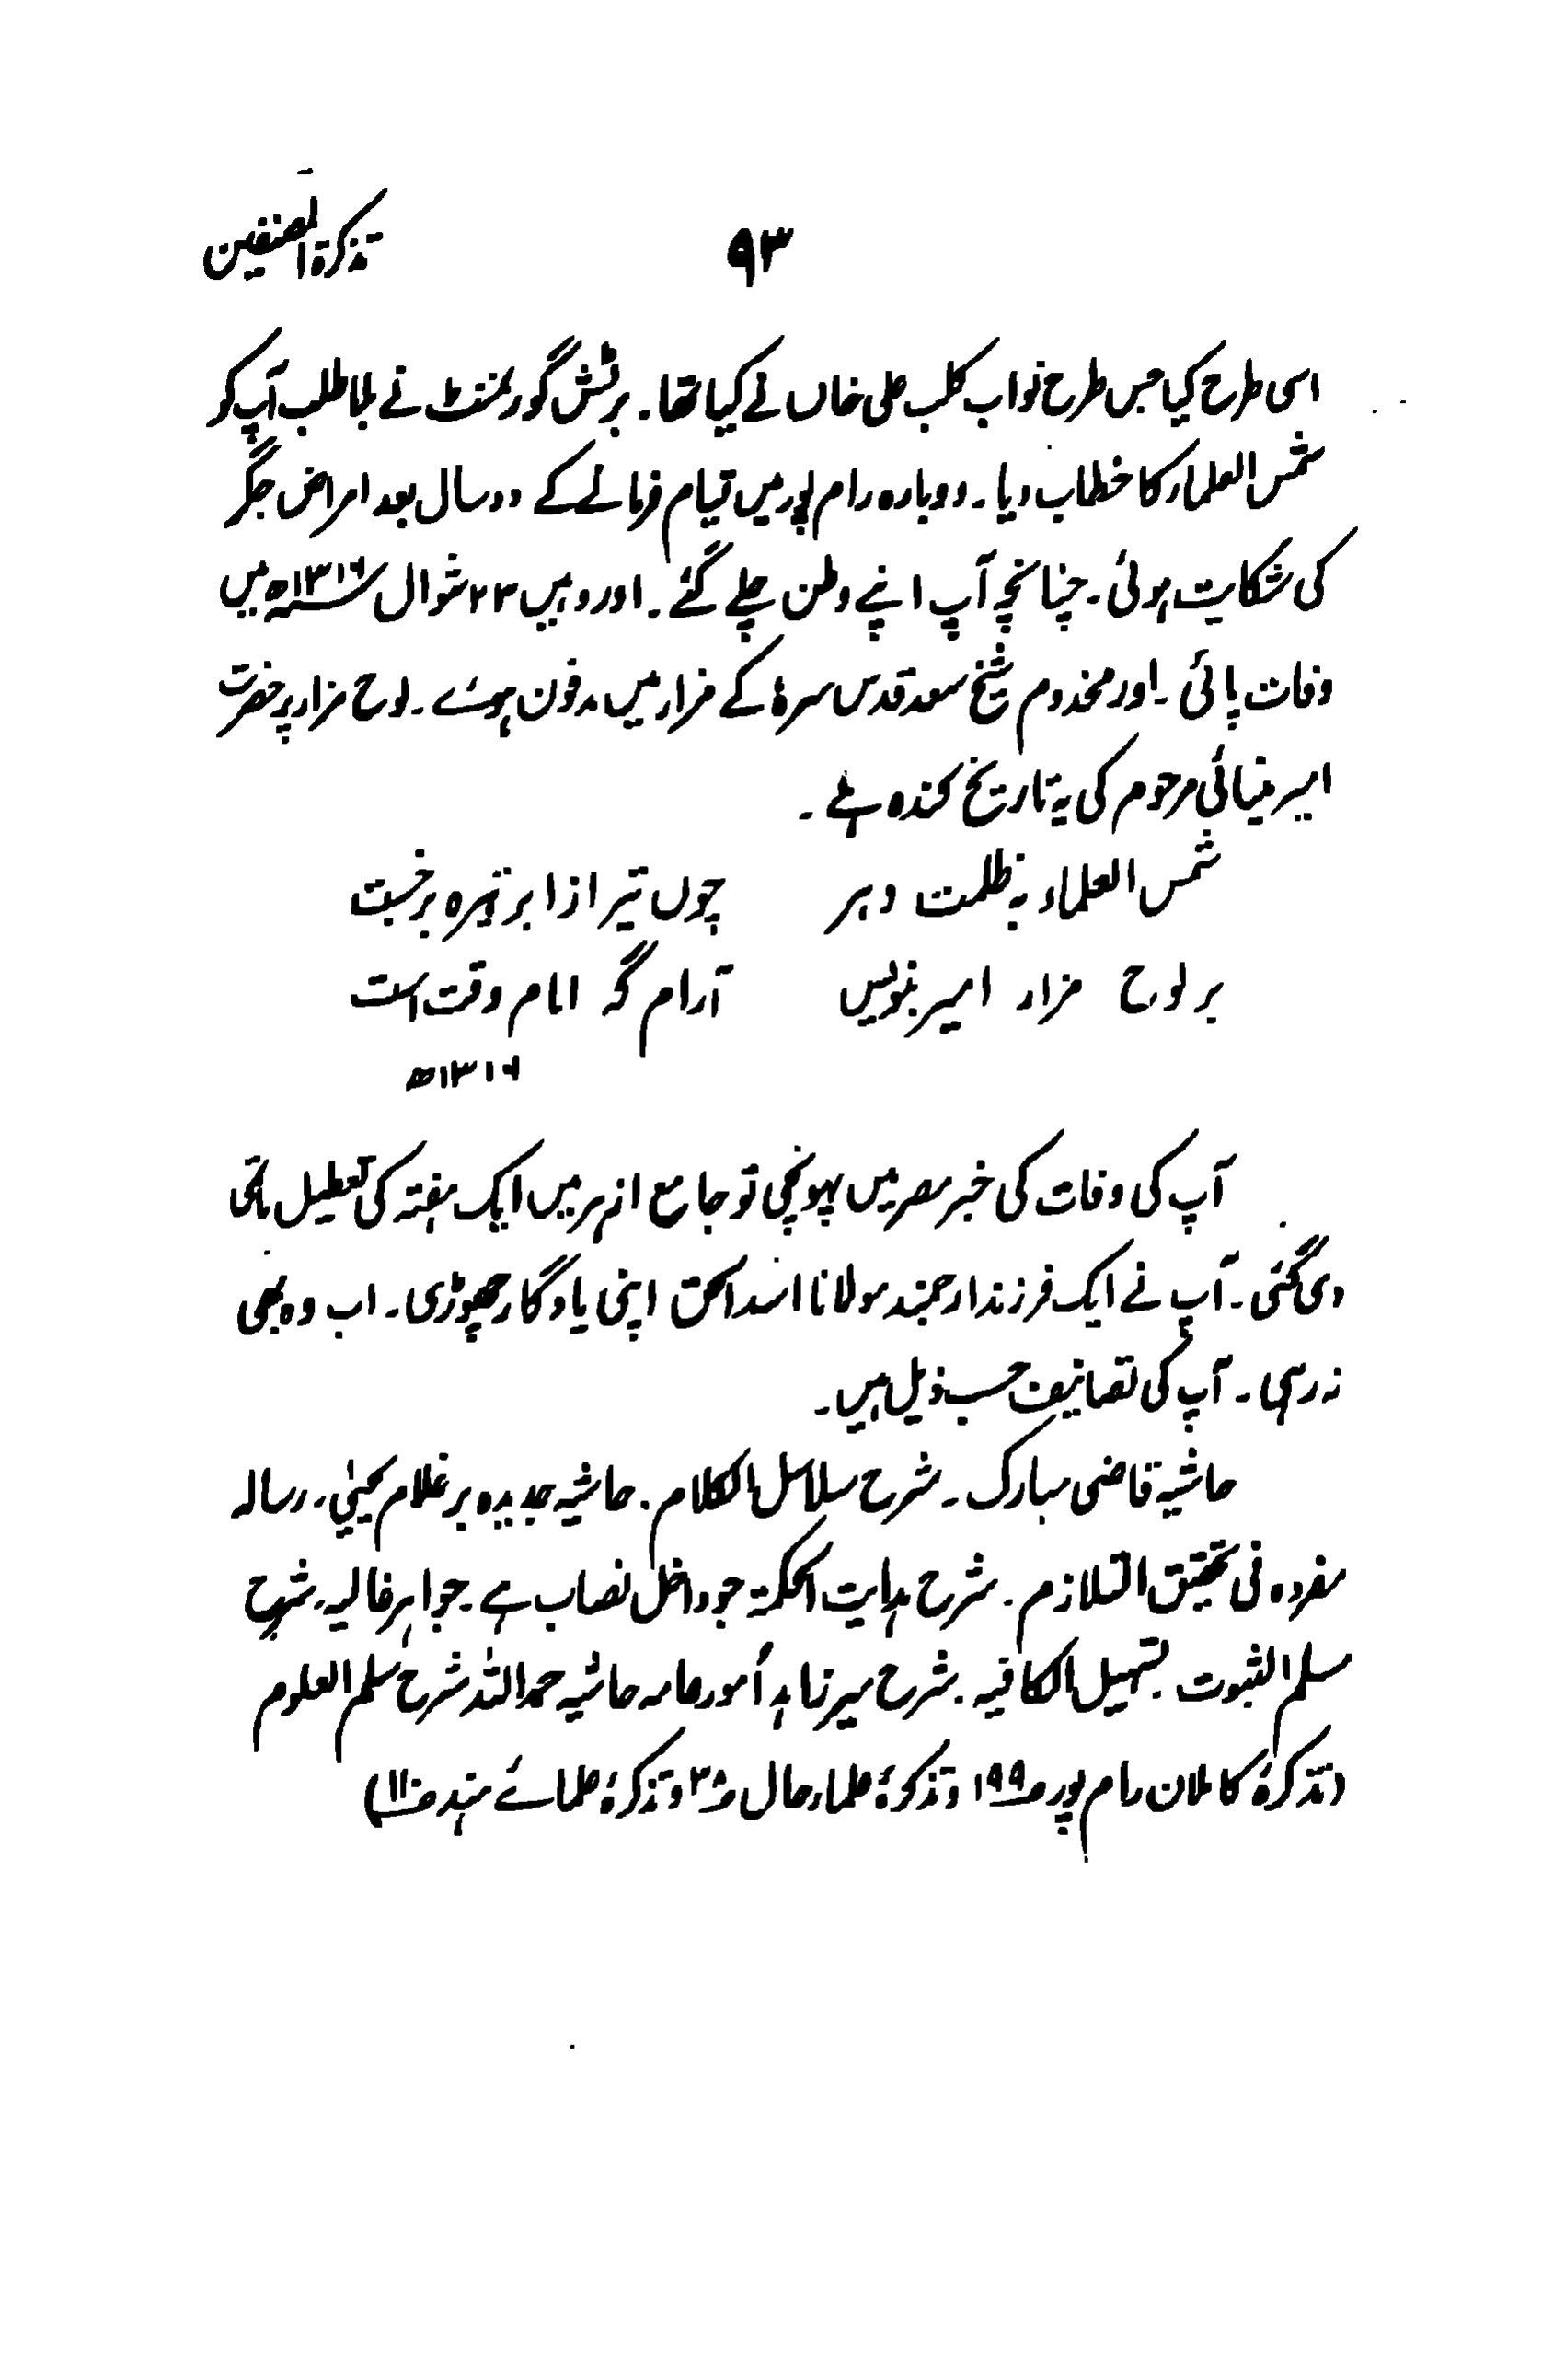 تذکرۃ المصنفین
۹۳
اسی طرح کیا جس طرح نواب کلب علی خاں نے کیا تھا۔ برٹش گورنمنٹ نے بلا طلب آپ کو
شمس العلماء کا خطاب دیا۔ دوبارہ رام پور میں قیام فرمانے کے دو سال بعد امراض جگر
کی شکایت ہوئی۔ چنانچہ آپ اپنے وطن چلے گئے۔ اور وہیں ۲۳ شوال ۱۳۱۶ھ میں
وفات پائی۔ اور مخدوم شیخ سعد قدس سرہٗ کے مزار میں مدفون ہوئے۔ لوح مزار پر حضرت
امیر مینائی مرحوم کی یہ تاریخ کندہ ہے۔
شمس العلماء بہ ظلمت دہر چوں تیر از ابر تیرہ برخست
بر لوح مزار امیر بنویس آرام گہ امام وقت است
۱۳۱۶ھ
آپ کی وفات کی خبر مصر میں پہونچی تو جامع ازہر میں ایک ہفتہ کی تعطیل ماتمی
دی گئی۔ آپ نے ایک فرزند ارجمند مولانا اسد الحق اپنی یادگار چھوڑی۔ اب وہ بھی
نہ رہی۔ آپ کی تصانیف حسب ذیل ہیں۔
حاشیہ قاضی مبارک۔ شرح سلاسل الکلام۔ حاشیہ جدیدہ بر غلام یحییٰ۔ رسالہ
مفردہ فی تحقیق التلازم۔ شرح ہدایت الحکمۃ جو داخل نصاب ہے۔ جواہر غالیہ۔ شرح
مسلم الثبوت۔ تسہیل الکافیہ۔ شرح میر زاہد اُمور عامہ حاشیہ حمد اللہ شرح سلم العلوم
(تذکرۂ کاملان رام پور ص۱۹۹ وتذکرۂ علماء حال ص۳۸ وتذکرۂ علمائے ہند ص۱۱)